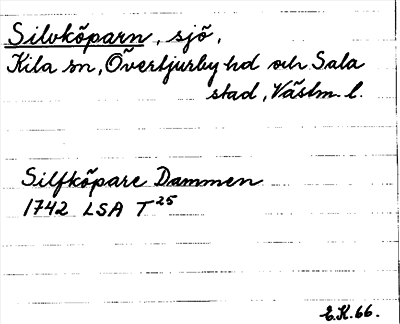 Silvköparn, sjö,
Kila sn, Övertjurbo hd och Sala
stad, Västm. l.
Silfköpare Dammen
1742 LSA T 25
E.K. 66.